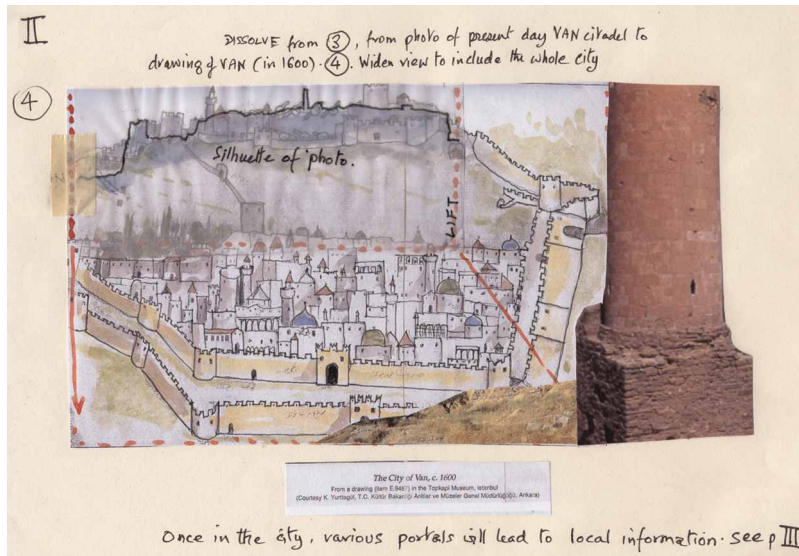 II
DISSOLVE from 3, from photo of present day VAN citadel to
drawing of VAN (in 1600). 4. Widen view to include the whole city
4
Silhuette of photo.
LIFT
The City of Van, c. 1600
From a drawing (item E.9487) in the Topkapi Museum, Istanbul
(Courtesy K. Yurttagül, T.C. Kültür Bakanlığı Anıtlar ve Müzeler Genel Müdürlüğüğü, Ankara)
Once in the city, various portals will lead to local information. See p III